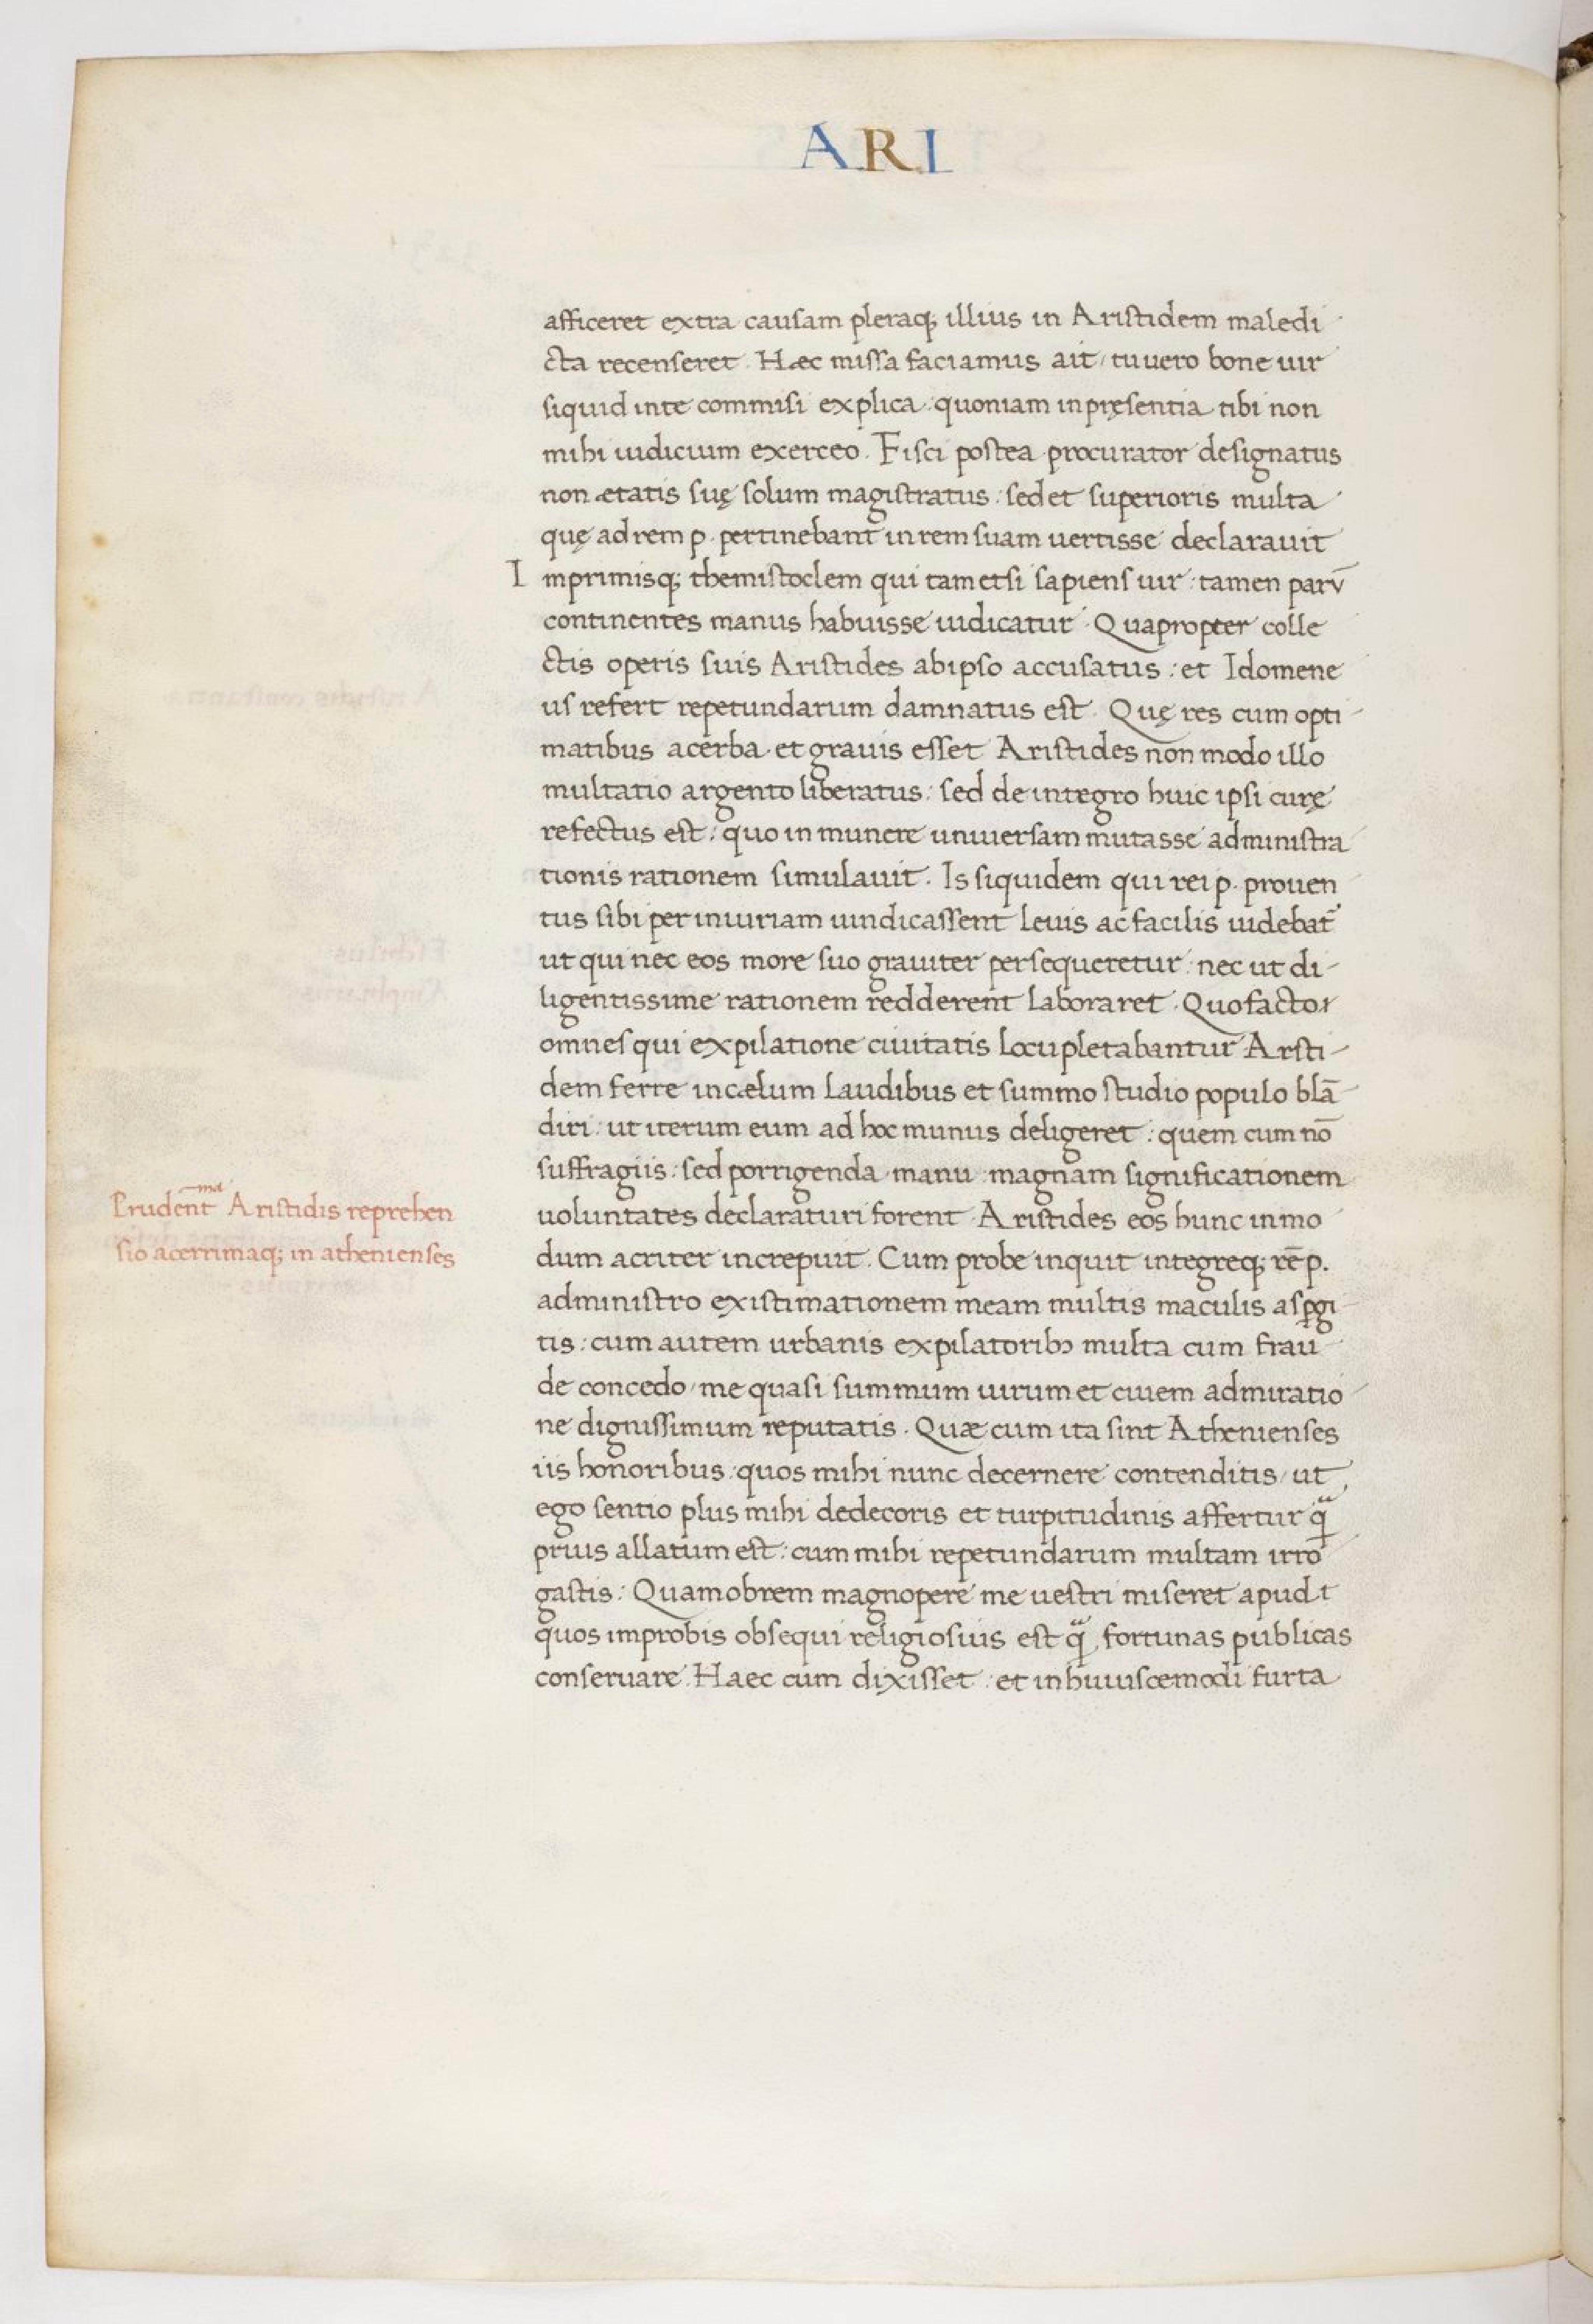 ARI
afficeret extra causam pleraq; illius in Aristidem maledi
cta recenseret. Hæc missa faciamus ait / tu uero bone uir
siquid inte commisi explica: quoniam inpręsentia tibi non
mihi iudicium exerceo. Fisci postea procurator designatus
non ætatis suę solum magistratus: sed et superioris multa
quę ad rem p. pertinebant in rem suam uertisse declarauit
Imprimisq; themistoclem qui tametsi sapiens uir: tamen parū
continentes manus habuisse iudicatur. Quapropter colle
ctis operis suis Aristides abipso accusatus: et Idomene
us refert repetundarum damnatus est. Quę res cum opti-
matibus acerba et grauis esset Aristides non modo illo
multatio argento liberatus: sed de integro huic ipsi curę
refectus est: quo in munere uniuersam mutasse administra
tionis rationem simulauit. Is siquidem qui rei p. prouen
tus sibi per iniuriam uindicassent leuis ac facilis uidebat᷑
ut qui nec eos more suo grauiter persequeretur: nec ut di-
ligentissime rationem redderent laboraret. Quo facto
omnes qui expilatione ciuitatis locupletabantur Arsti-
dem ferre incælum laudibus et summo studio populo blā
diri: ut iterum eum ad hoc munus deligeret: quem cum nō
suffragiis: sed porrigenda manu magnam significationem
Prudentᵐᵃ Aristidis reprehen
sio acerrimaq; in athenienses
uoluntates declaraturi forent. Aristides eos hunc inmo
dum acriter increpuit. Cum probe inquit integreq; rē p.
administro existimationem meam multis maculis aspgi
tis: cum autem urbanis expilatoribꝫ multa cum frau
de concedo / me quasi summum uirum et ciuem admiratio
ne dignissimum reputatis. Quæ cum ita sint Athenienses
iis honoribus: quos mihi nunc decernere contenditis / ut
ego sentio plus mihi dedecoris et turpitudinis affertur qᷓ
prius allatum est: cum mihi repetundarum multam irro
gastis: Quamobrem magnopere me uestri miseret apud
quos improbis obsequi religiosius est qᷓ fortunas publicas
conseruare. Haec cum dixisset: et in huiuscemodi furta